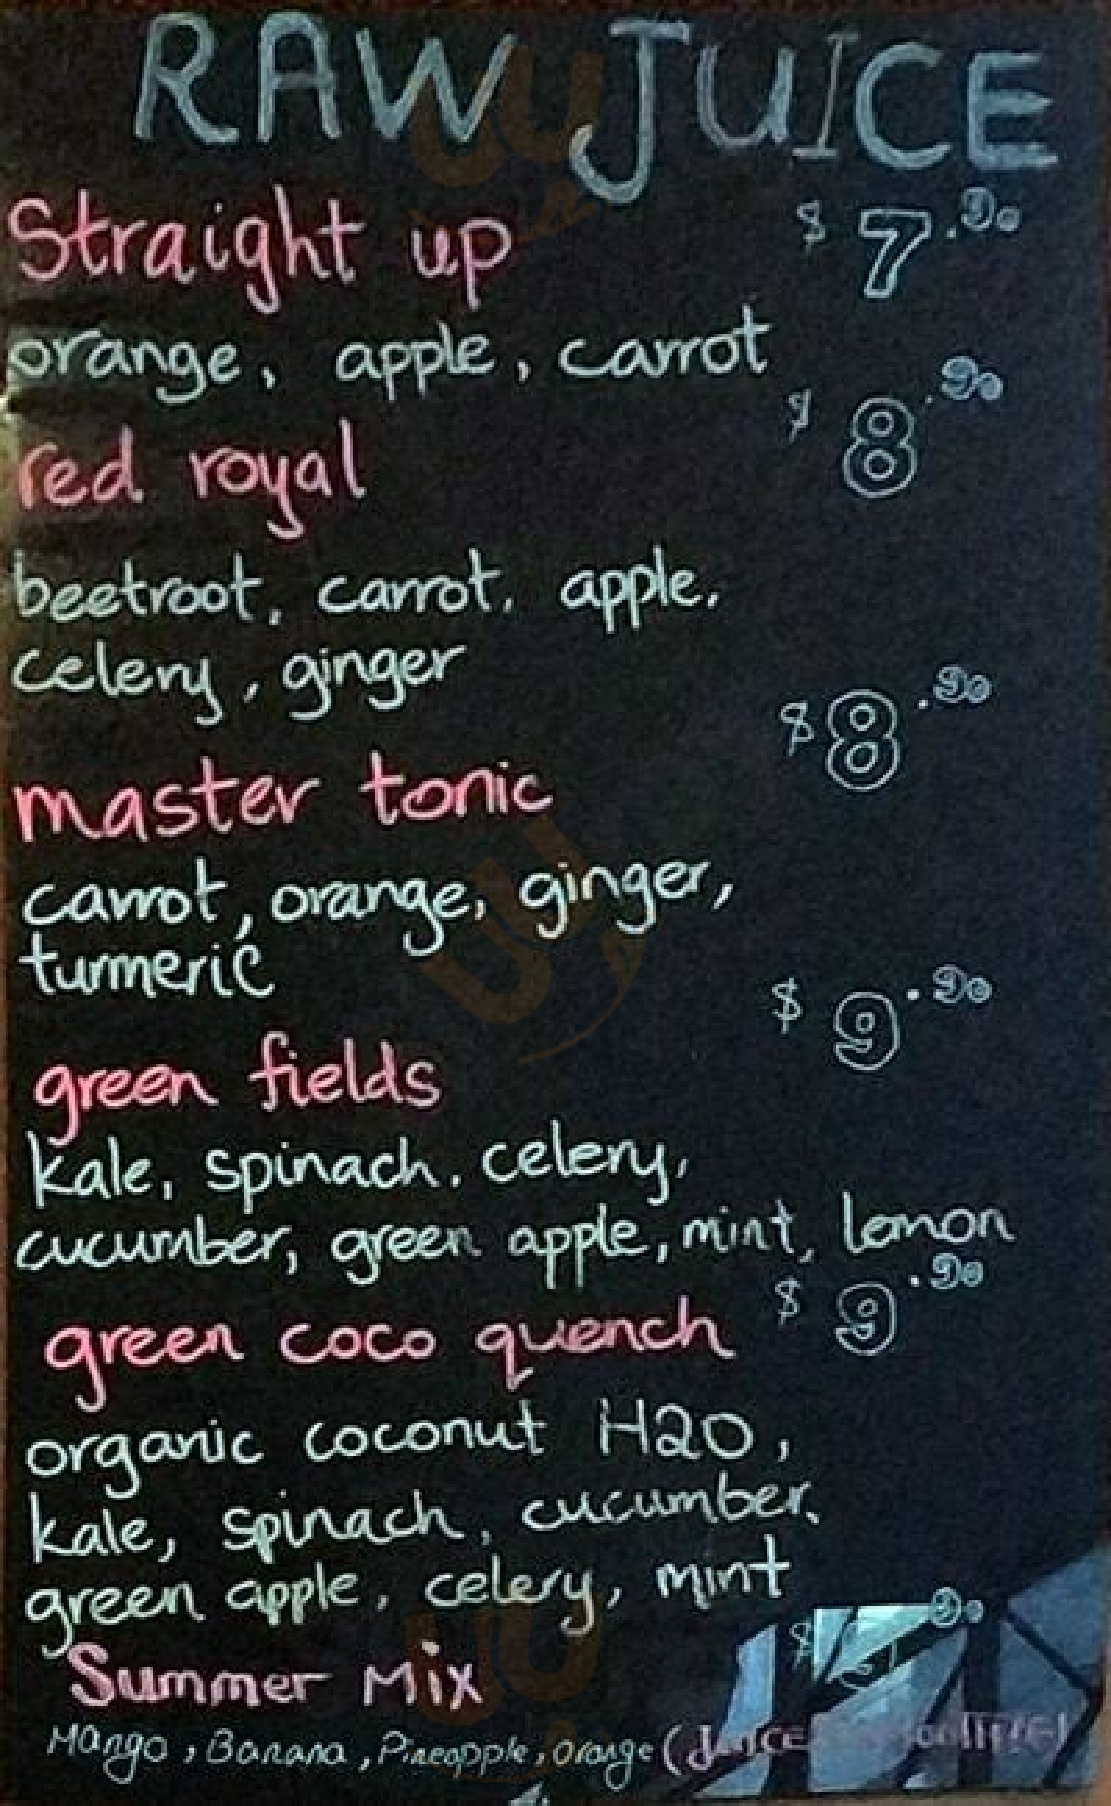 RAW JUICE
Straight up $7.90
orange, apple, carrot
red royal $8.90
beetroot, carrot, apple,
celery, ginger
master tonic $8.90
carrot, orange, ginger,
turmeric
green fields $9.90
kale, spinach, celery,
cucumber, green apple, mint, lemon
green coco quench $9.90
organic coconut H2O,
kale, spinach, cucumber,
green apple, celery, mint
Summer Mix
Mango, Banana, Pineapple, Orange (Juice